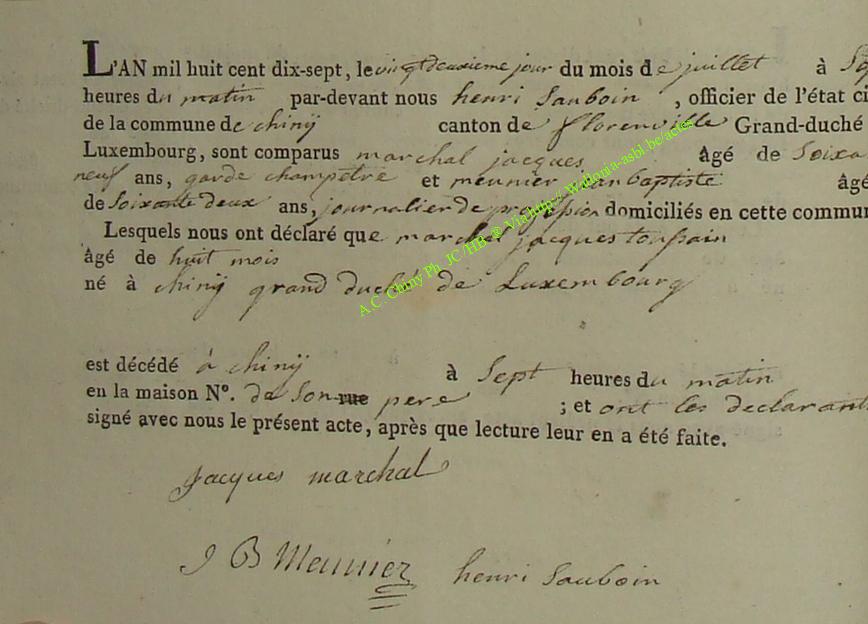 L'AN mil huit cent dix-sept, le vingt deuxieme jour du mois de juillet à
heures du matin par-devant nous henri Sauboin , officier de l'état ci
de la commune de chiny canton de florenville Grand-duché
Luxembourg, sont comparus marchal jacques âgé de Soixa
neuf ans, garde champetre et meunier jan baptiste âgé
de Soixante deux ans, journalier de profession domiciliés en cette commun
Lesquels nous ont déclaré que marchal jacques toussain
âgé de huit mois
né à chiny grand duché de Luxembourg
A.C. Chiny Ph. JC /HB- @ Via http:- Wallonia-asbl.be/actes
est décédé à chiny à Sept heures du matin
en la maison N°. de Son rue pere ; et ont les declarant
signé avec nous le présent acte, après que lecture leur en a été faite.
jacques marchal
J B Meunier henri Sauboin